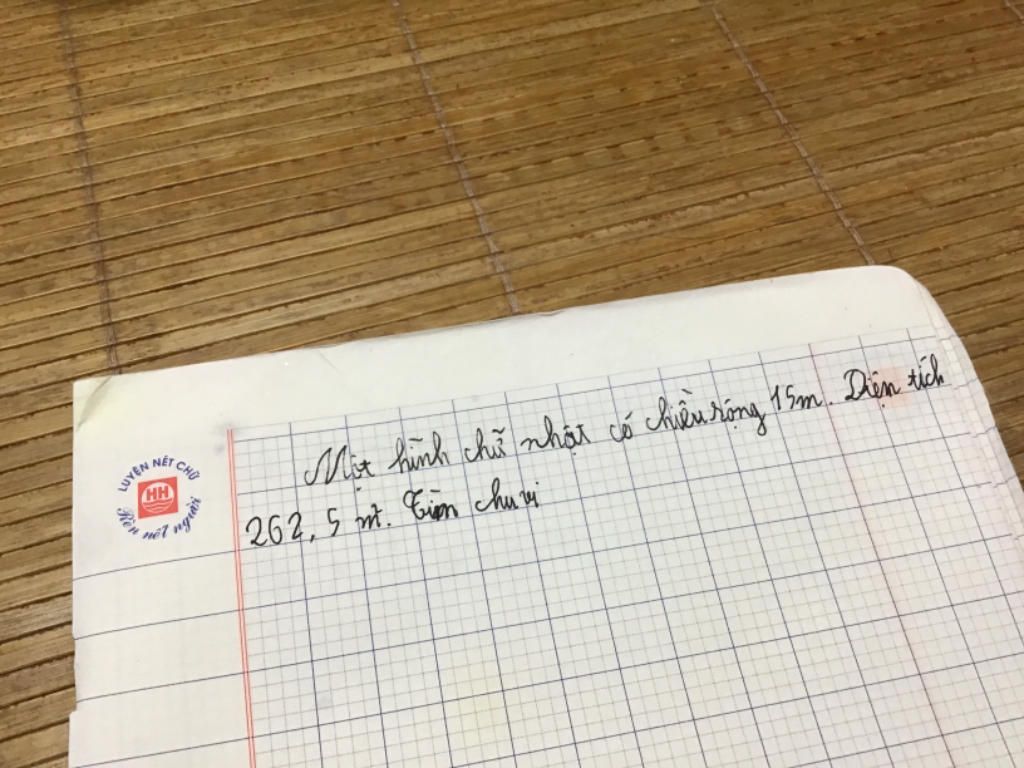 LUYỆN NÉT CHỮ
HH
Rèn nết người
Một hình chữ nhật có chiều rộng 15m. Diện tích
262,5 m². Tìm chu vi